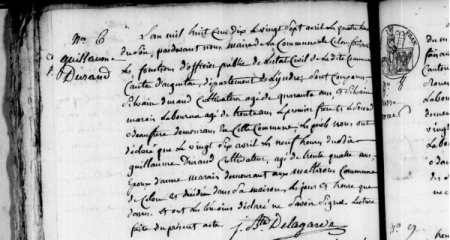 No 6
guillaume
Durand
L'an mil huit cent dix le vingt Sept avril le quatre
du Soir, pardevant nous maire de la Commune de Celon faisant
les fonction d'officier public de l'état Civil de la dite Commune
Canton d'argenton, département de L'yndre, Sont Comparus
Silvain durand Cultivateur agé de quarante ans et Silvain
marais Laboureur agé de trente ans Le premier frere et Le Second
beaufrere demeurans En Cette Commune, Lesquels nous ont
déclaré que Le vingt Six avril Le neuf heures du Soir
guillaume durand Cultivateur, agé de trente quatre ans
Epoux d'anne marais demeurant aux Commune
de Celon est décédé dans Sa maison, Les jour et heure que
dessus, et ont Les témoins déclaré ne Savoir Signer Lecture
faite du présent acte.
j. Bte Delagarde